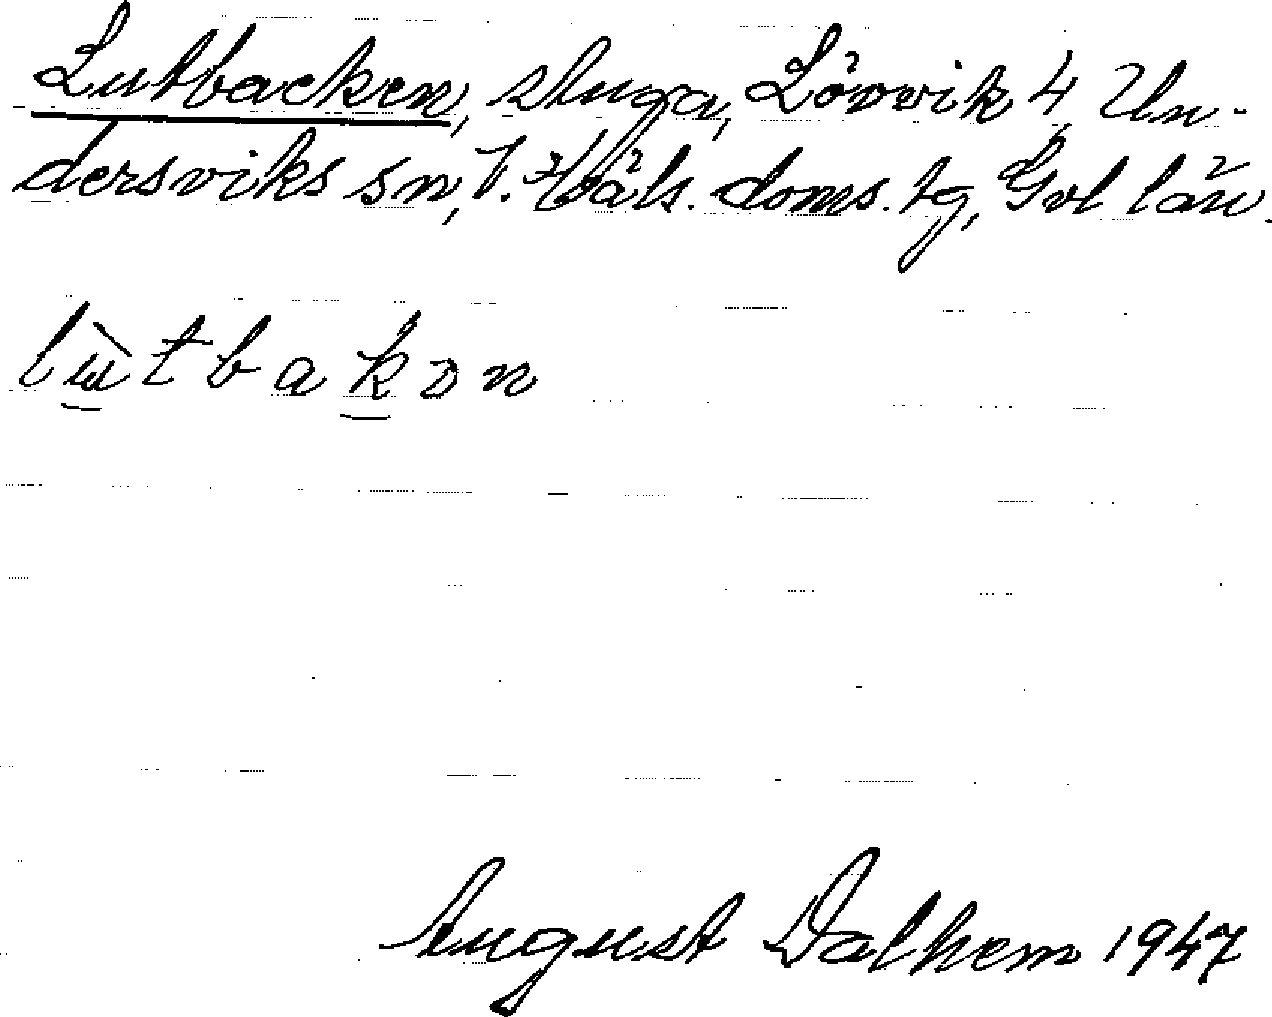 Lutbacken, stuga, Lövvik 4, Un-
dersviks sn, V. Häls. doms. tg, Gvl län.
lùtbakən
August Dalhem 1947